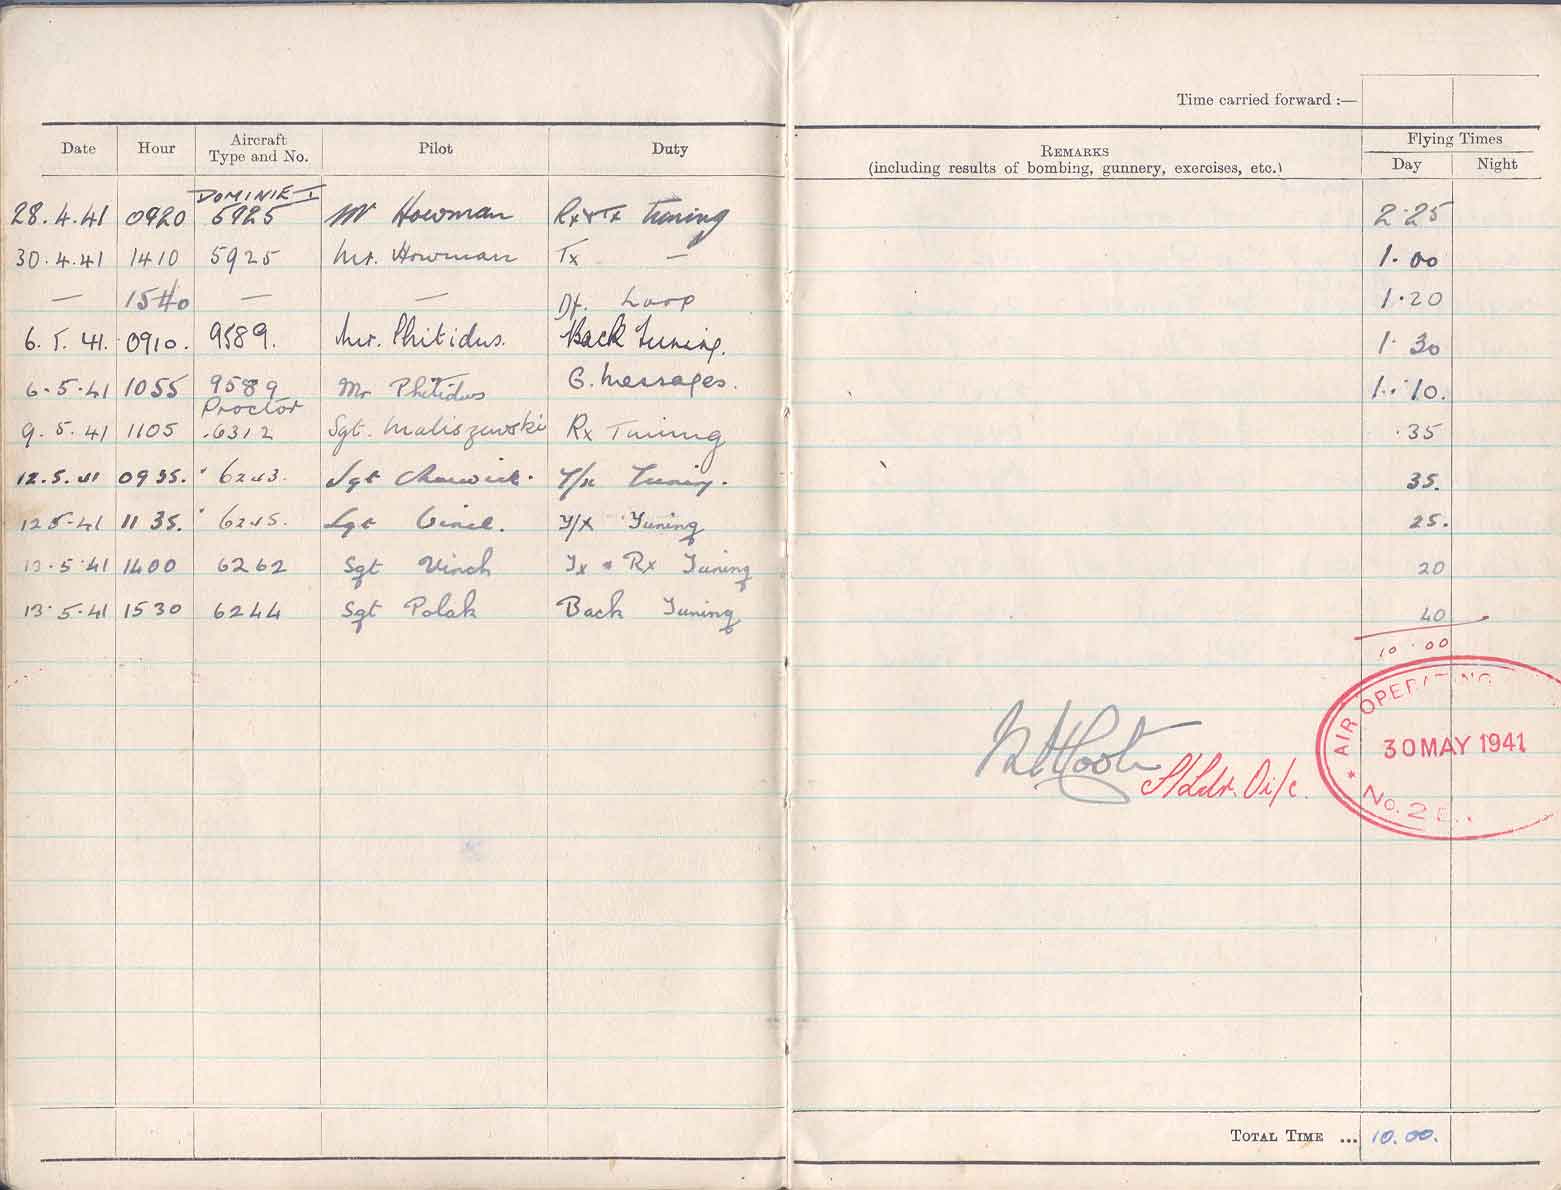 Time carried forward :—
Date Hour Aircraft Type and No. Pilot Duty REMARKS (including results of bombing, gunnery, exercises, etc.) Flying Times Day Night
DOMINIE I
28.4.41 0920 5925 Mr Howman Rx & Tx Tuning 2.25
30.4.41 1410 5925 Mr. Howman Tx — 1.00
— 1540 — — Df. Loop 1.20
6.5.41. 0910. 9589. Mr. Phitidus. Back Tuning. 1.30
6.5.41 1055 9589 Mr Phitidus G. Messages. 1.10.
Proctor
9.5.41 1105 .6312 Sgt. Maliszewski Rx Tuning .35
12.5.41 0935. " 6243. Sgt T/x Tuning. 35.
12 5.41 11 35. " Sgt T/x Tuning 25.
13.5.41 1400 6262 Sgt Vinch Tx & Rx Tuning 20
13.5.41 1530 6244 Sgt Polak Back Tuning 40
10.00
AIR OPERATING
30 MAY 1941
* No. 2
S/Ldr. Oi/c.
TOTAL TIME ... 10.00.